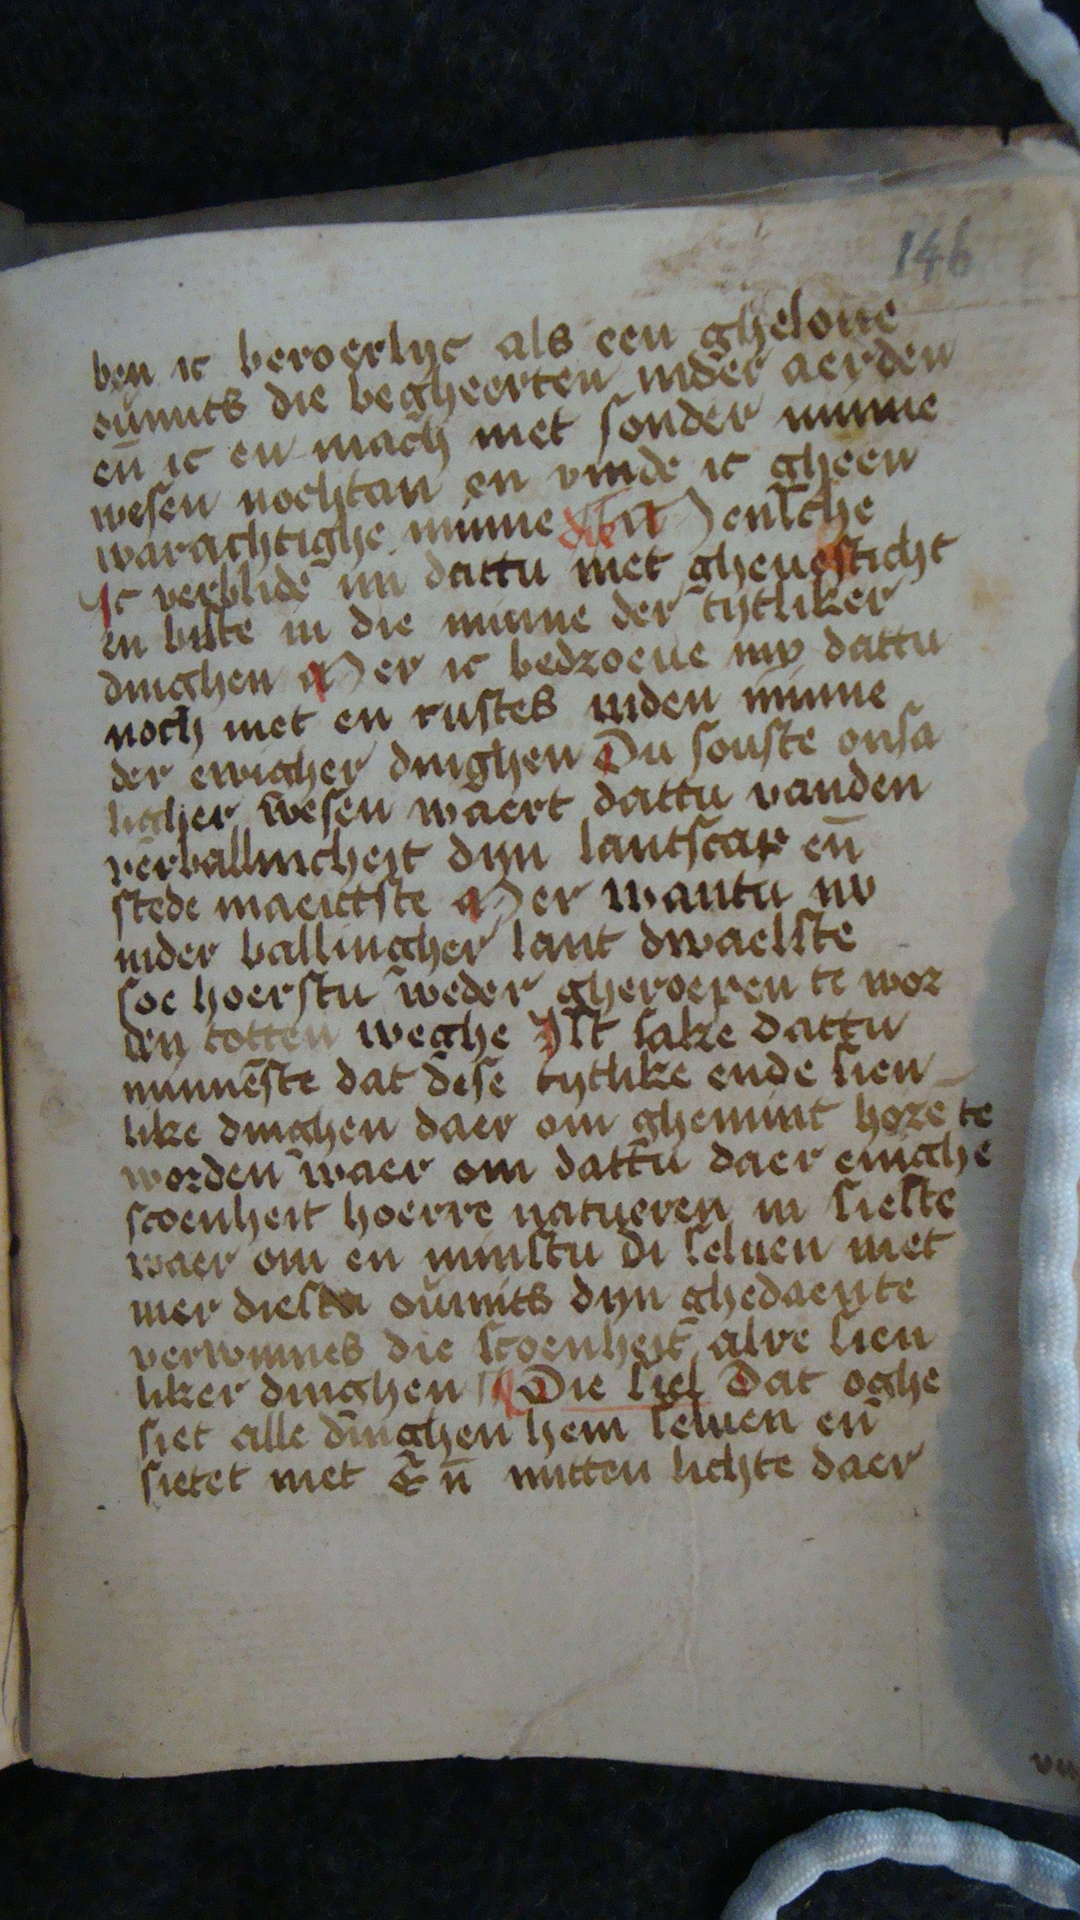 146
ben ic beroerlyc als een gheloue
ou̅mits die begheerten inder aerden
en̅ ic en mach niet sonder minne
wesen nochtan en vinde ic gheen
warachtighe minne die Mensche
Ic verblide mi dattu niet gheuesticht
en biste in die minne der tytliker
dinghen Mer ic bedroeue my dattu
noch niet en rustes inden minne
der ewigher dinghen Du souste onsa
ligher wesen waert dattu vanden
verballincheit dijn lantscap en̅
stede maecttste Mer wantu nv
inder ballingher lant dwaelste
soe hoerstu weder gheroepen te wor
den totten weghe Ist sake dattu
minneste dat dese tytlike ende sien
like dinghen daer om ghemint hore te
worden waer om dattu daer einghe
scoenheit hoerre natueren in sieste
waer om en minstu di seluen niet
mer ou̅mits dijn ghedaente
verwinnes die scoenheit alre sien
liker dinghen Die siel Dat oghe
siet alle dinghen hem seluen en̅
sietet niet En̅ mitten lichte daer